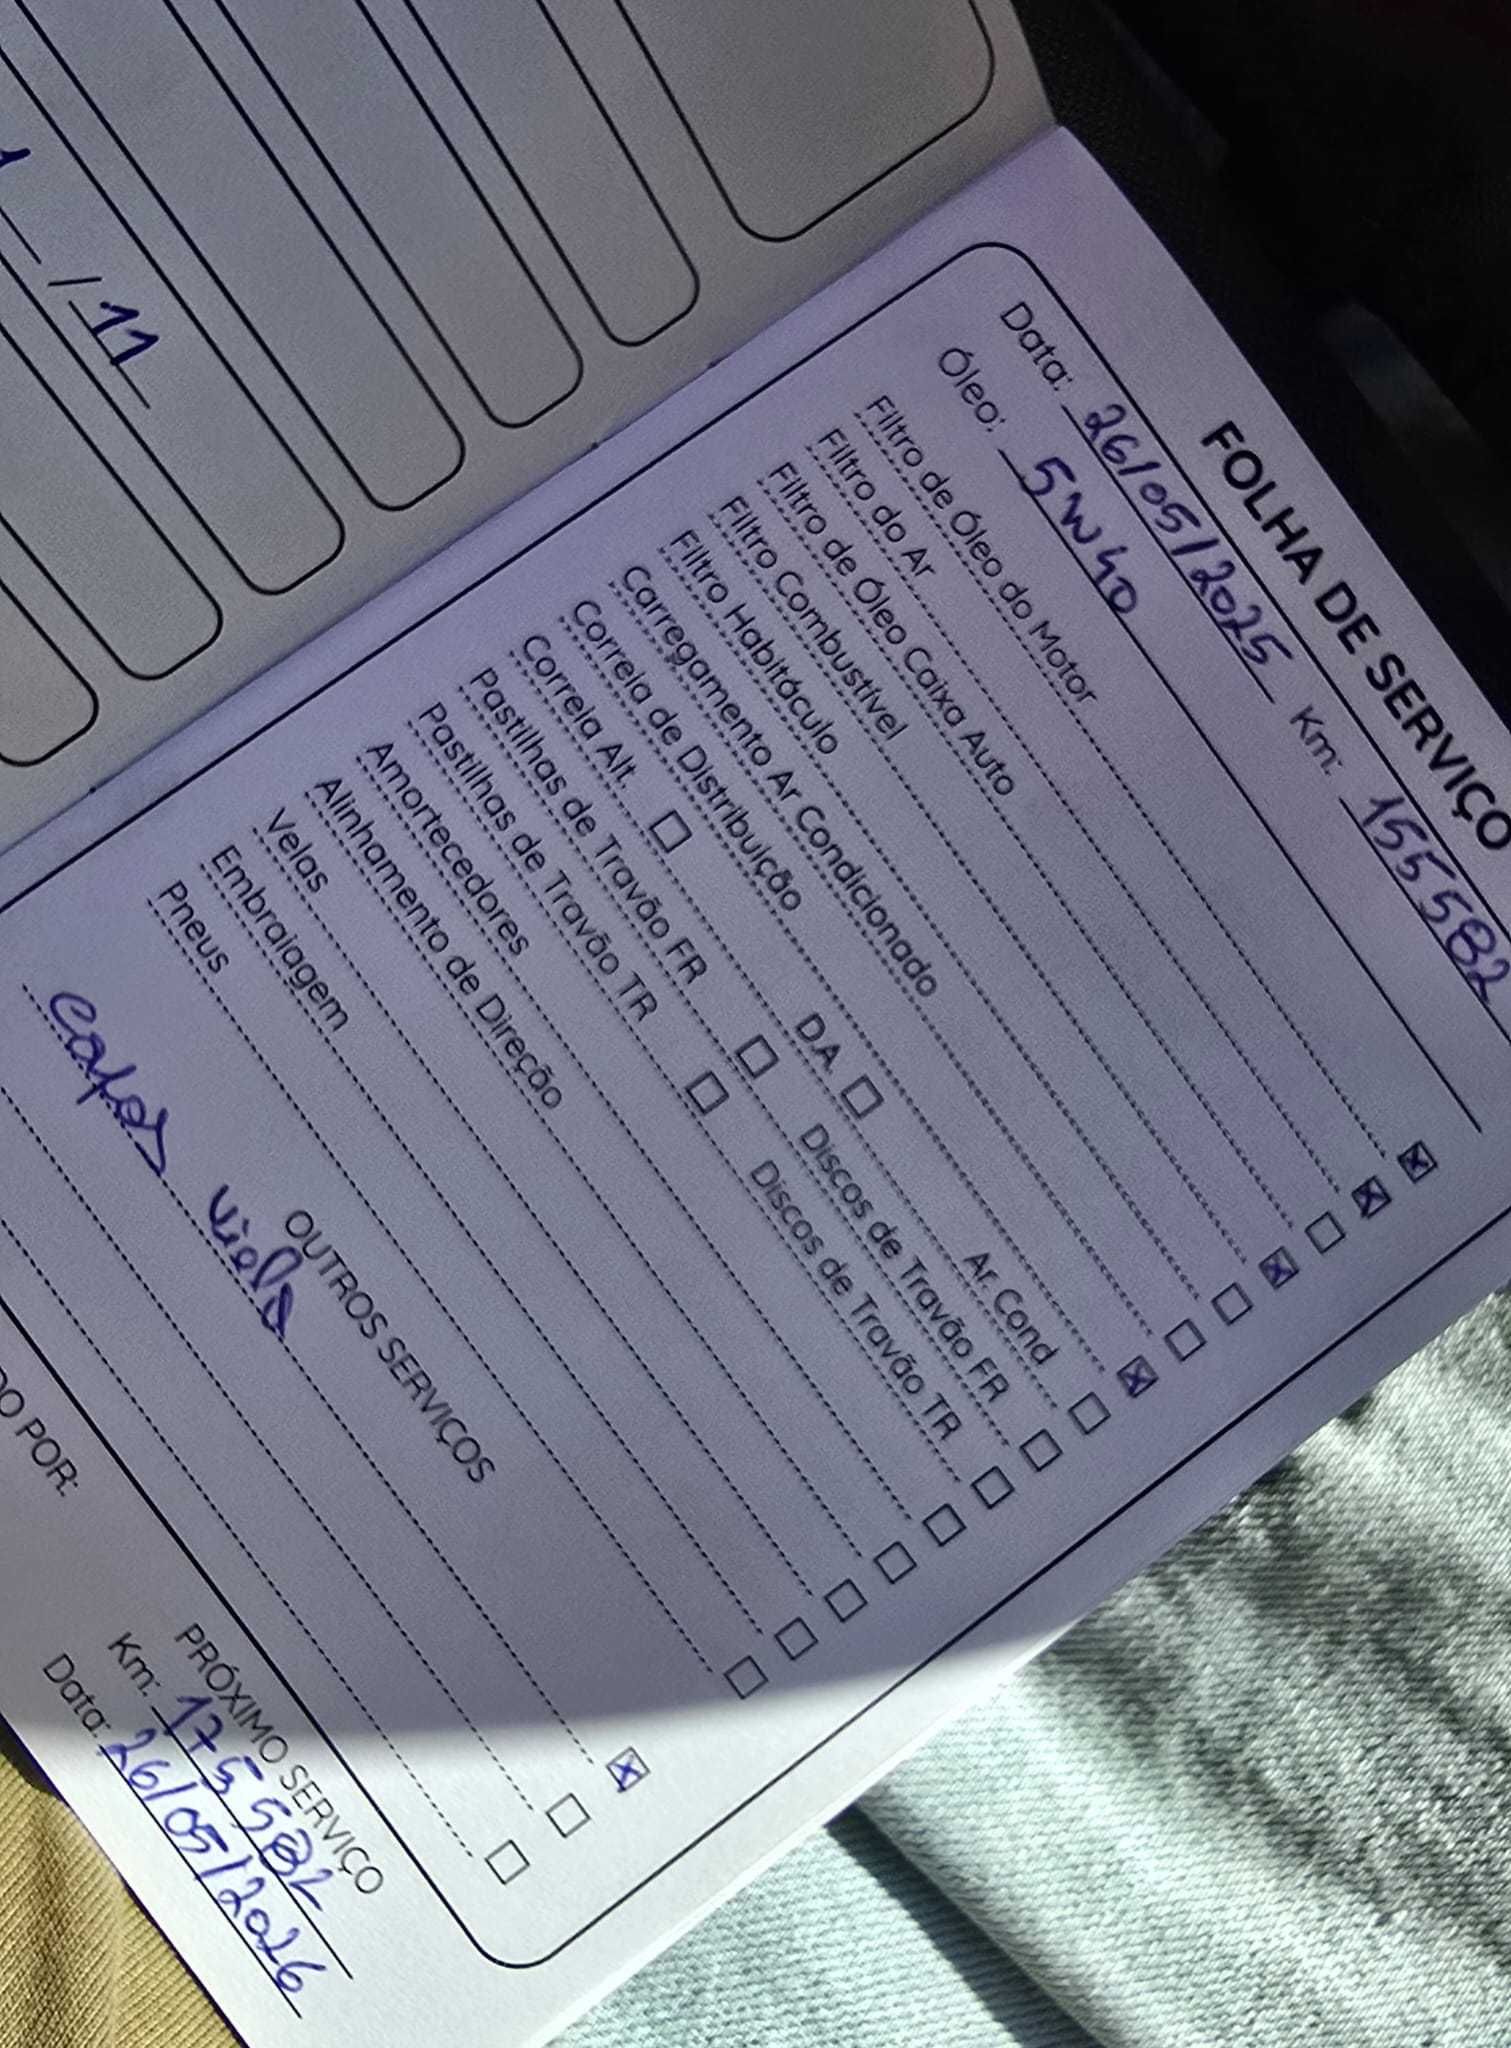 /11
FOLHA DE SERVIÇO
Data: 26/05/2025 Km: 155582
Óleo: 5W40
Filtro de Óleo do Motor
Filtro do Ar
Filtro de Óleo Caixa Auto
Filtro Combustível
Filtro Habitáculo
Carregamento Ar Condicionado
Correia de Distribuição
Correia Alt. DA Ar Cond
Pastilhas de Travão FR Discos de Travão FR
Pastilhas de Travão TR Discos de Travão TR
Amortecedores
Alinhamento de Direção
Velas
Embraiagem
Pneus
OUTROS SERVIÇOS
DO POR:
PRÓXIMO SERVIÇO
Km: 175582
Data: 26/05/2026